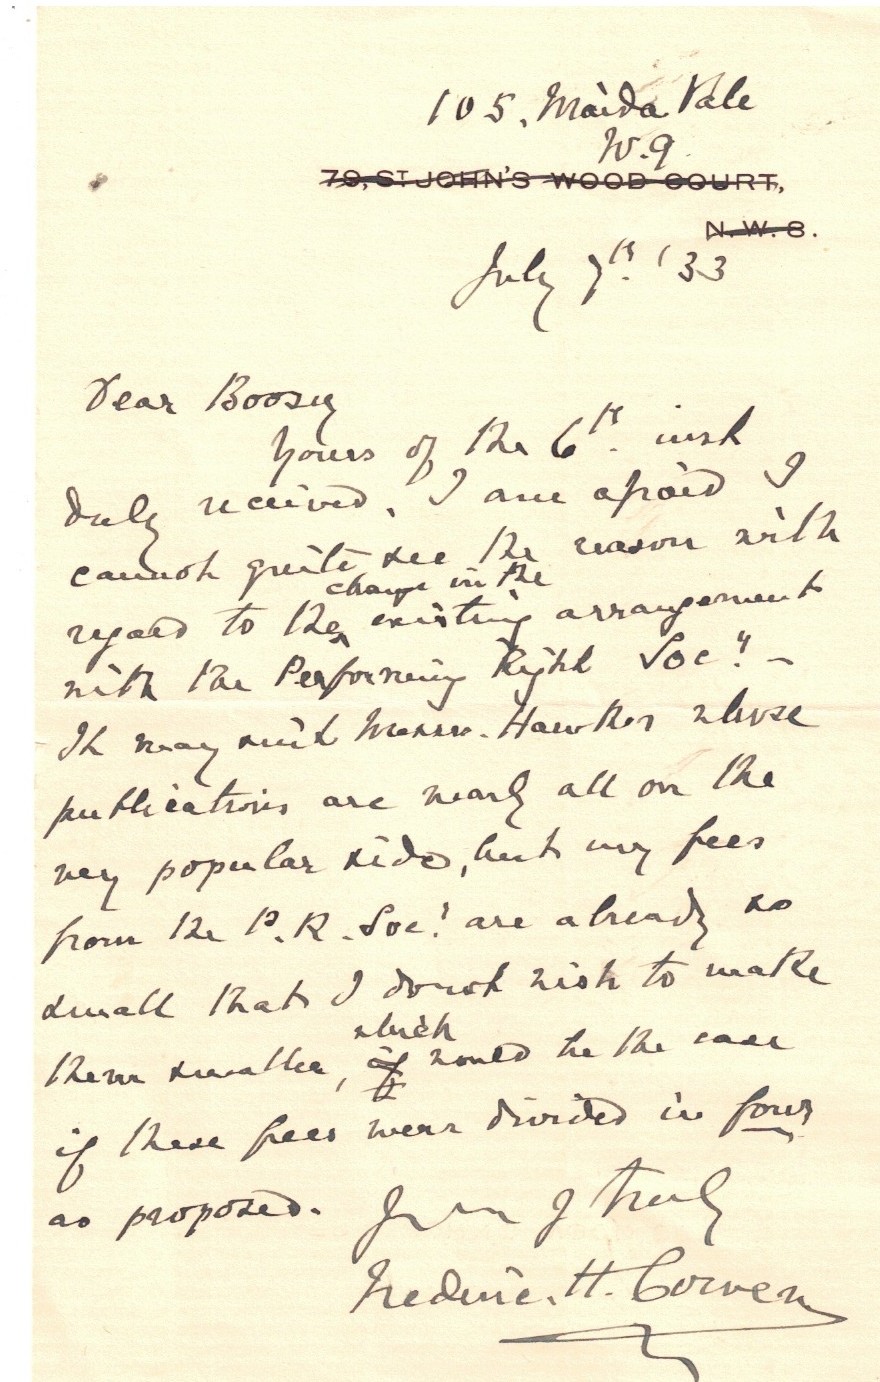 105, Maida Vale
W.9.
79, ST JOHN'S WOOD COURT,
N.W. 8.
July 7th. '33
Dear Boosey
Yours of the 6th. inst
duly received. I am afraid I
cannot quite see the reason with
change in the
regard to the existing arrangement
with the Performing Right Socy. –
It may suit Messrs. Hawkes whose
publications are nearly all on the
very popular side, but my fees
from the P.R. Socy. are already so
small that I do not wish to make
which
them smaller, if would be the case
if these fees were divided in four
as proposed. Yours truly
Frederic. H. Cowen